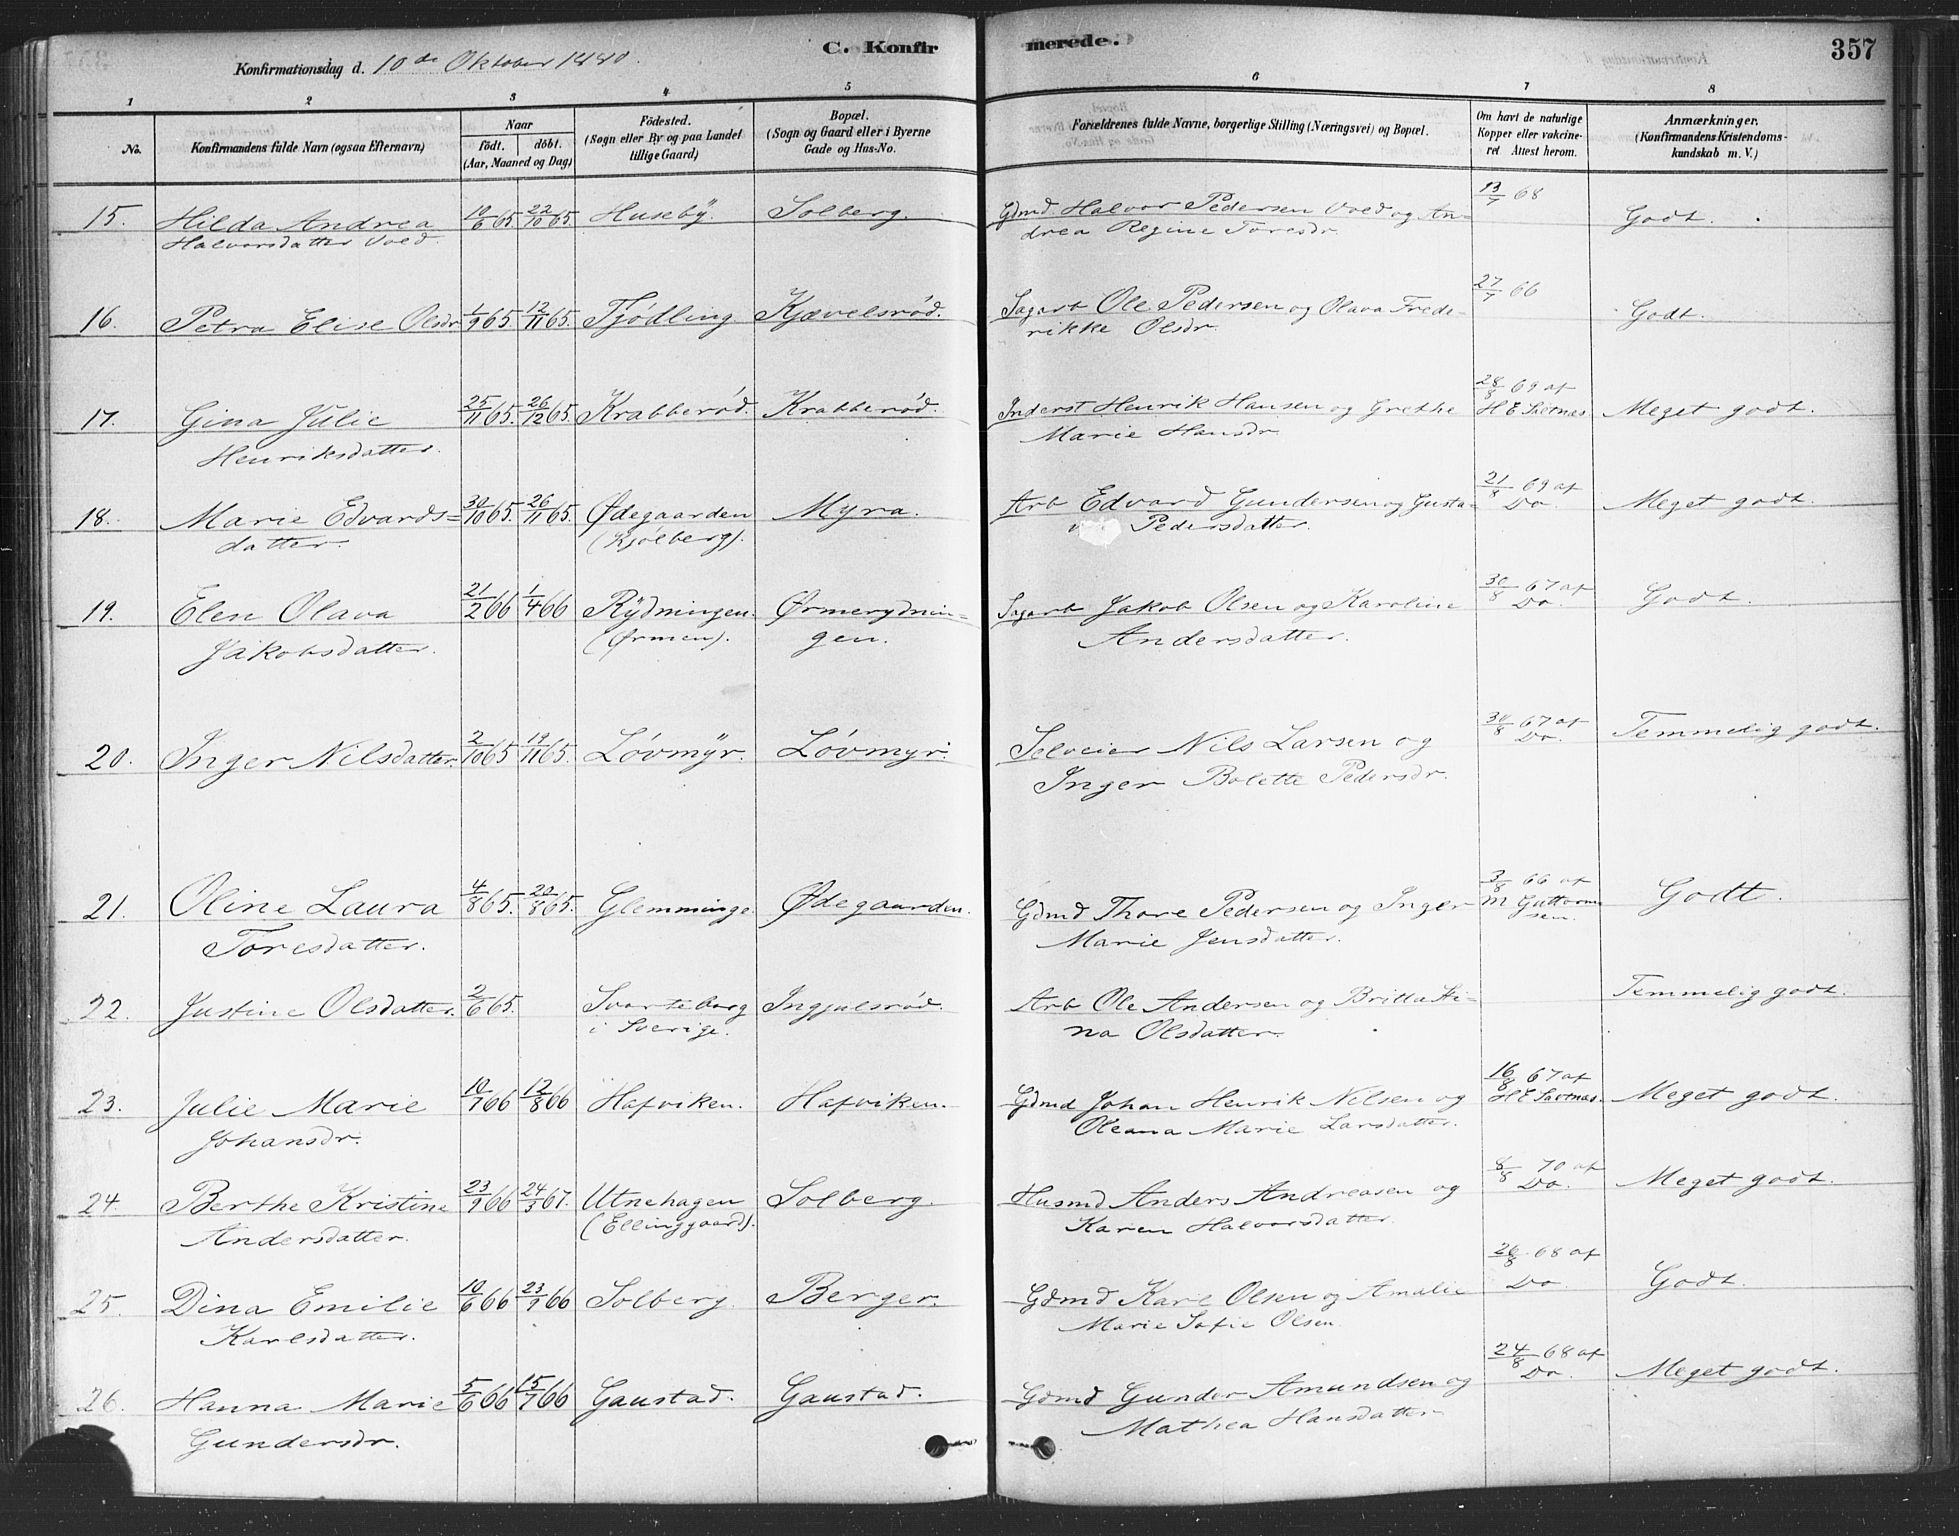 C. Konfirmerede.
357
Konfirmationsdag d. 10de Oktober 1880.
1 2 3 4 5 6 7 8
No.
Konfirmandens fulde Navn (ogsaa Efternavn)
Naar
födt. döbt.
(Aar, Maaned og Dag)
Födested.
(Sogn eller By og paa Landet
tillige Gaard)
Bopæl.
(Sogn og Gaard eller i Byerne
Gade og Hus-No.
Forældrenes fulde Navne, borgerlige Stilling (Næringsvei) og Bopæl.
Om havt de naturlige
Kopper eller vakcine-
ret Attest herom.
Anmærkninger.
(Konfirmandens Kristendoms-
kundskab m. V.)
15. Hilda Andrea 10/6 65. 22/10 65. Huseby. Solberg. Gdmd Halvor Pedersen Vold og An- 13/7 68 Godt.
Halvorsdatter Vold. drea Regine Toresdr.
16. Petra Elise Olsdr 1/9 65 12/11 65. Tjødling Kjævelsrød. Sagarb Ole Pedersen og Olava Frede- 27/7 66 Godt.
rikke Olsdr.
17. Gina Julie 25/11 65. 26/12 65. Krabberød. Krabberød. Inderst Henrik Hansen og Grethe 28/8 69 af Meget godt.
Henriksdatter. Marie Hansdr. H E
18. Marie Edvards= 30/10 65. 26/11 65. Ødegaarden Myra. Arb Edvard Gundersen og Gusta- 21/8 69 af Meget godt.
datter. (Kjølberg). Pedersdatter. Do.
19. Elen Olava 21/2 66 1/4 66 Rydningen. Ørmerydnin= Sagarb Jakob Olsen og Karoline 30/8 67 af Godt.
Jakobsdatter. (Ørmen). gen. Andersdatter. Do.
20. Inger Nilsdatter. 2/10 65 19/11 65. Løvmyr. Løvmyr. Selveier Nils Larsen og 30/8 67 af Temmelig godt.
Inger Bolette Pedersdr. Do.
21. Oline Laura 4/8 65. 20/8 65. Glemminge. Ødegaarden. Gdmd Thore Pedersen og Inger 3/8 66 af Godt.
Toresdatter. Marie Jensdatter. M Guttorm
sen.
22. Justine Olsdatter. 2/6 65. Svarteborg Ingjulsrød. Arb Ole Andersen og Britta Sti- Temmelig godt.
i Sverige. na Olsdatter.
23. Julie Marie 10/7 66 12/8 66 Hafviken. Hafviken. Gdmd Johan Henrik Nilsen og 16/8 67 af Meget godt.
Johansdr. Oleana Marie Larsdatter. H E
24. Berthe Kristine 23/9 66 24/3 67. Utnehagen Solberg. Husmd Anders Andreasen og 8/8 70 af Meget godt.
Andersdatter. (Ellinggaard). Karen Halvorsdatter. Do.
25. Dina Emilie 10/6 66 23/9 66 Solberg. Berger. Gdmd Karl Olsen og Amalie 26/8 68 af Godt.
Karlsdatter. Marie Sofie Olsen. Do.
26. Hanna Marie 5/6 66 15/7 66 Gaustad. Gaustad. Gdmd Gunder Amundsen og 24/8 68 af Meget godt.
Gundersdr. Mathea Hansdatter Do.